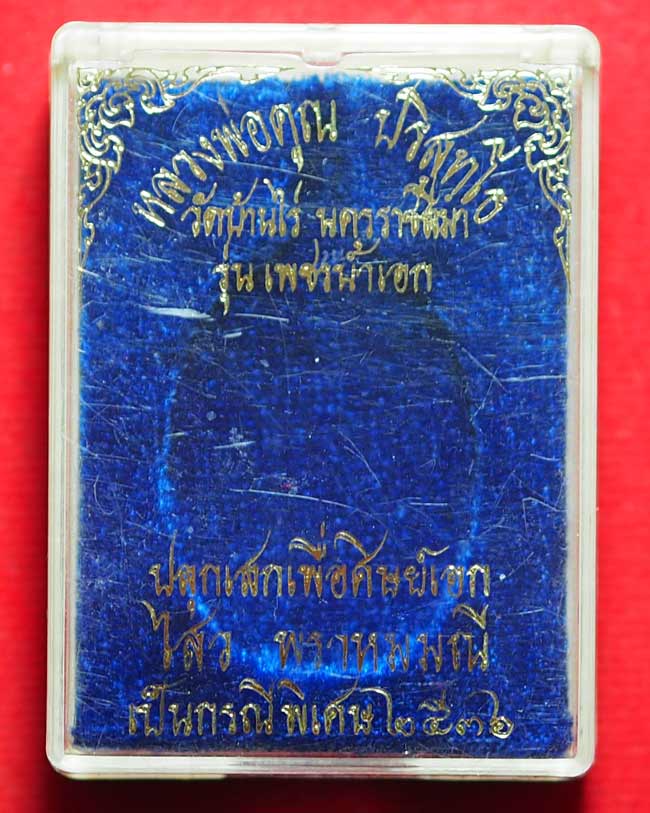 หลวงพ่อคูณ ปริสุทฺโธ
วัดบ้านไร่ นครราชสีมา
รุ่น เพชรน้ำเอก
ปลุกเสกเพื่อศิษย์เอก
ไสว พราหมมณี
เป็นกรณีพิเศษ ๒๕๓๖